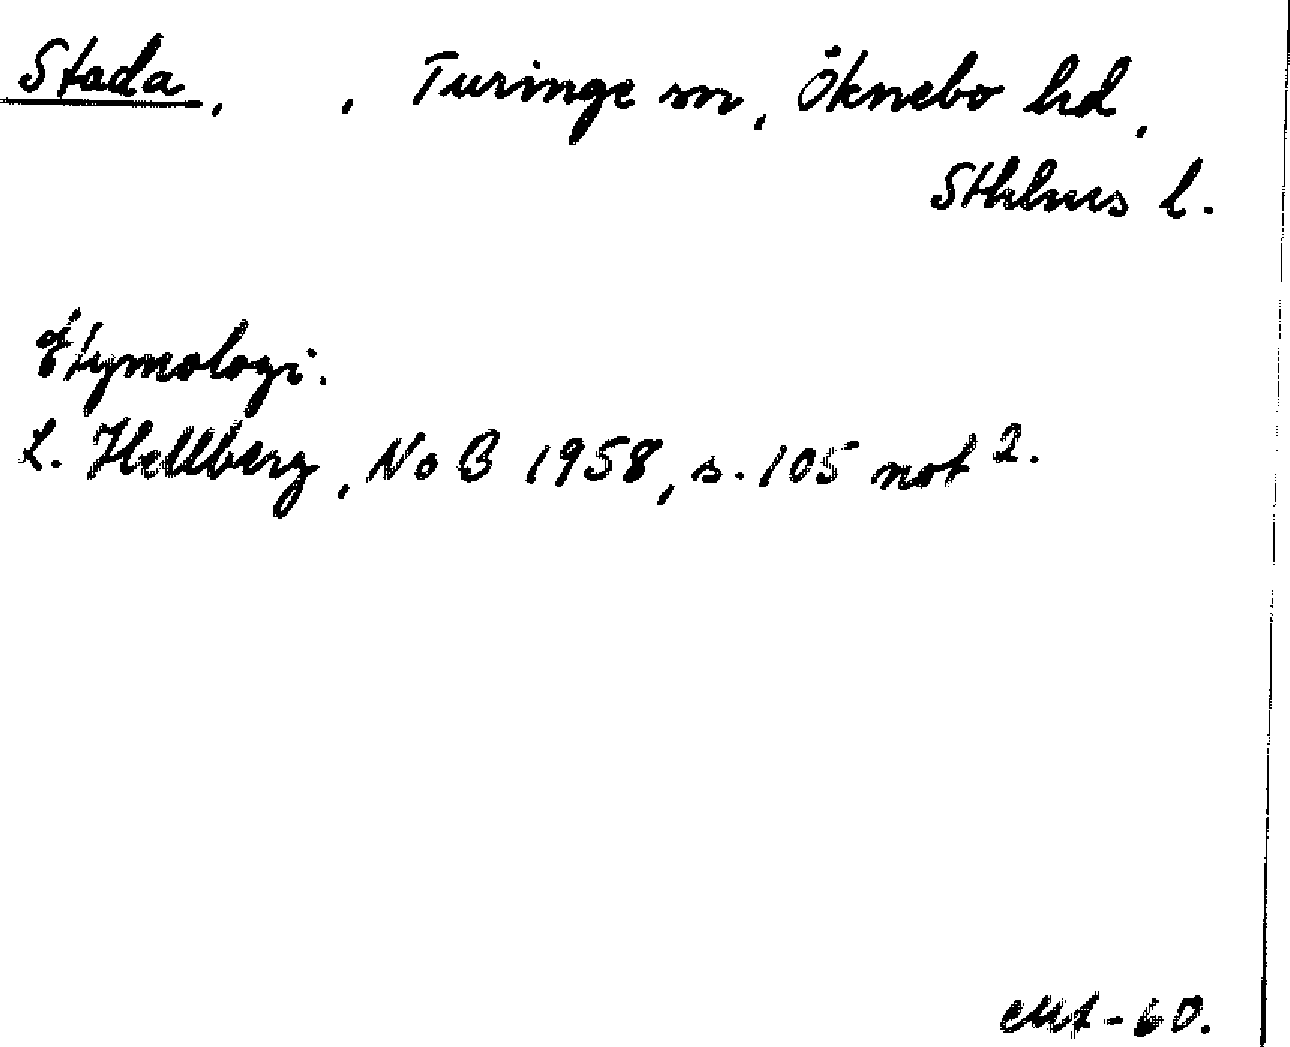 Stada,      , Turinge sn, Öknebo hd,
Sthlms l.
Etymologi.
L. Hellberg, NoB 1958, s. 105 not 2.
-60.